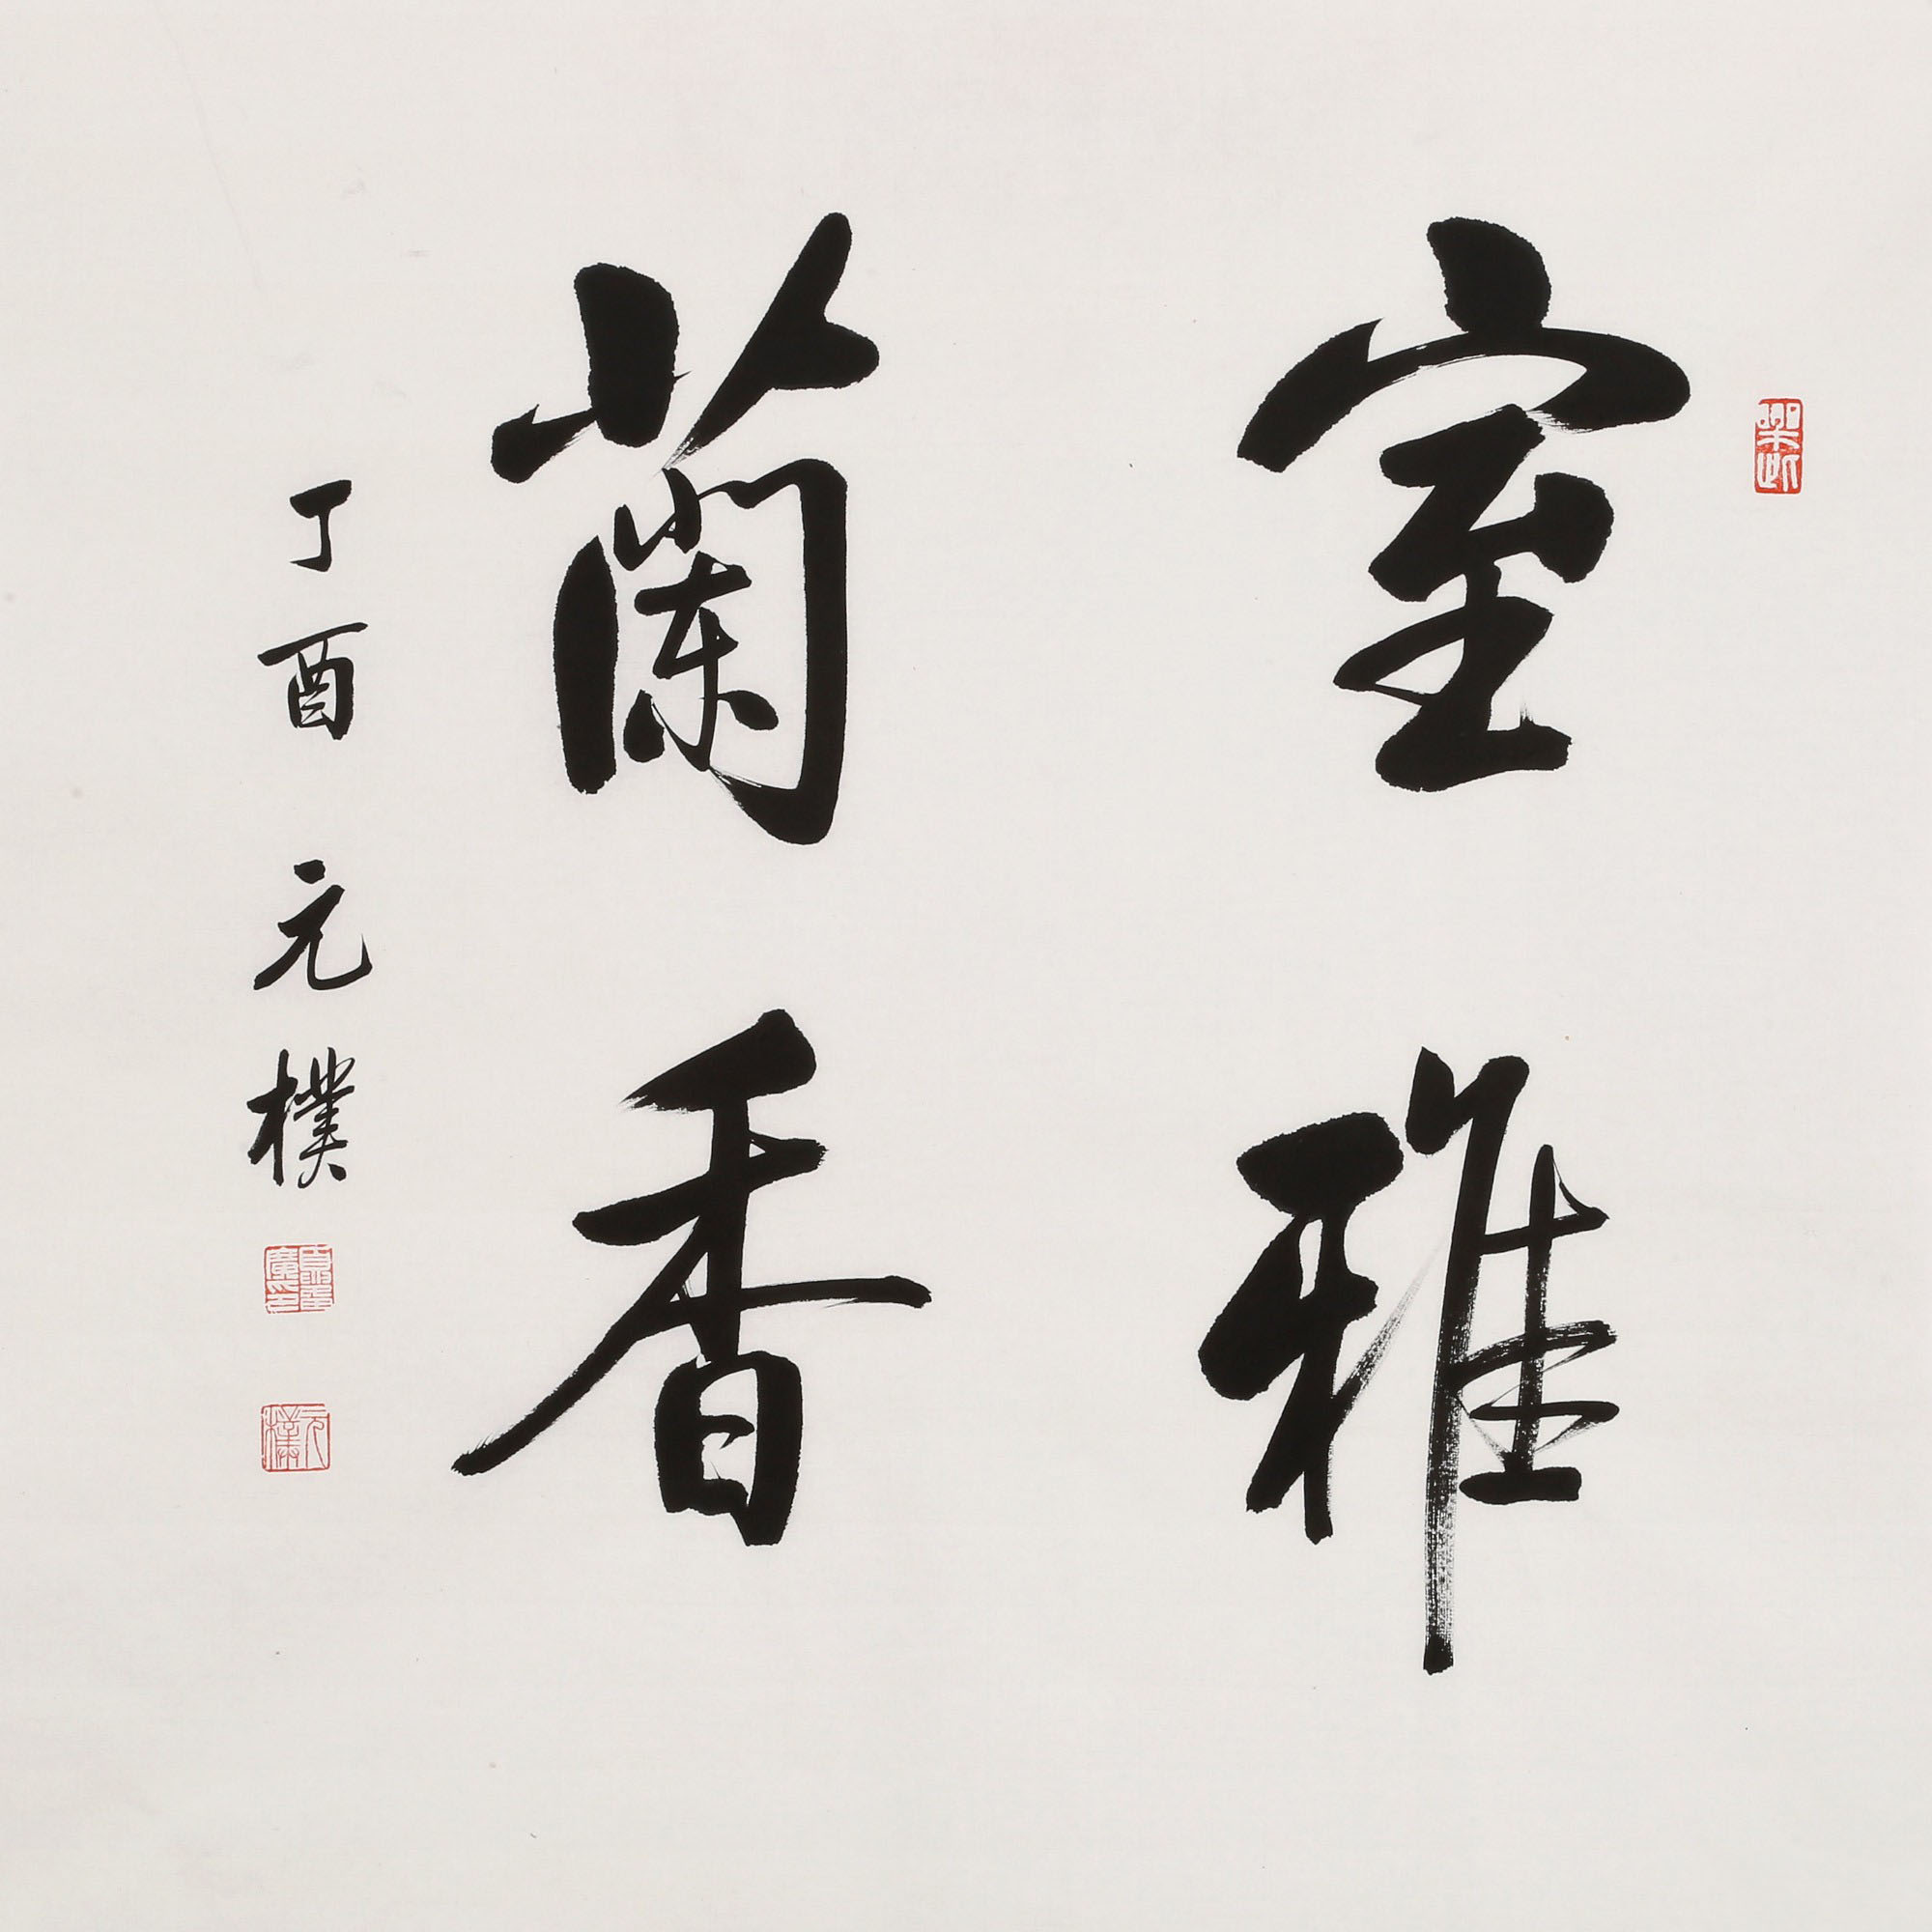 室雅
蘭香
丁酉元樸
元樸